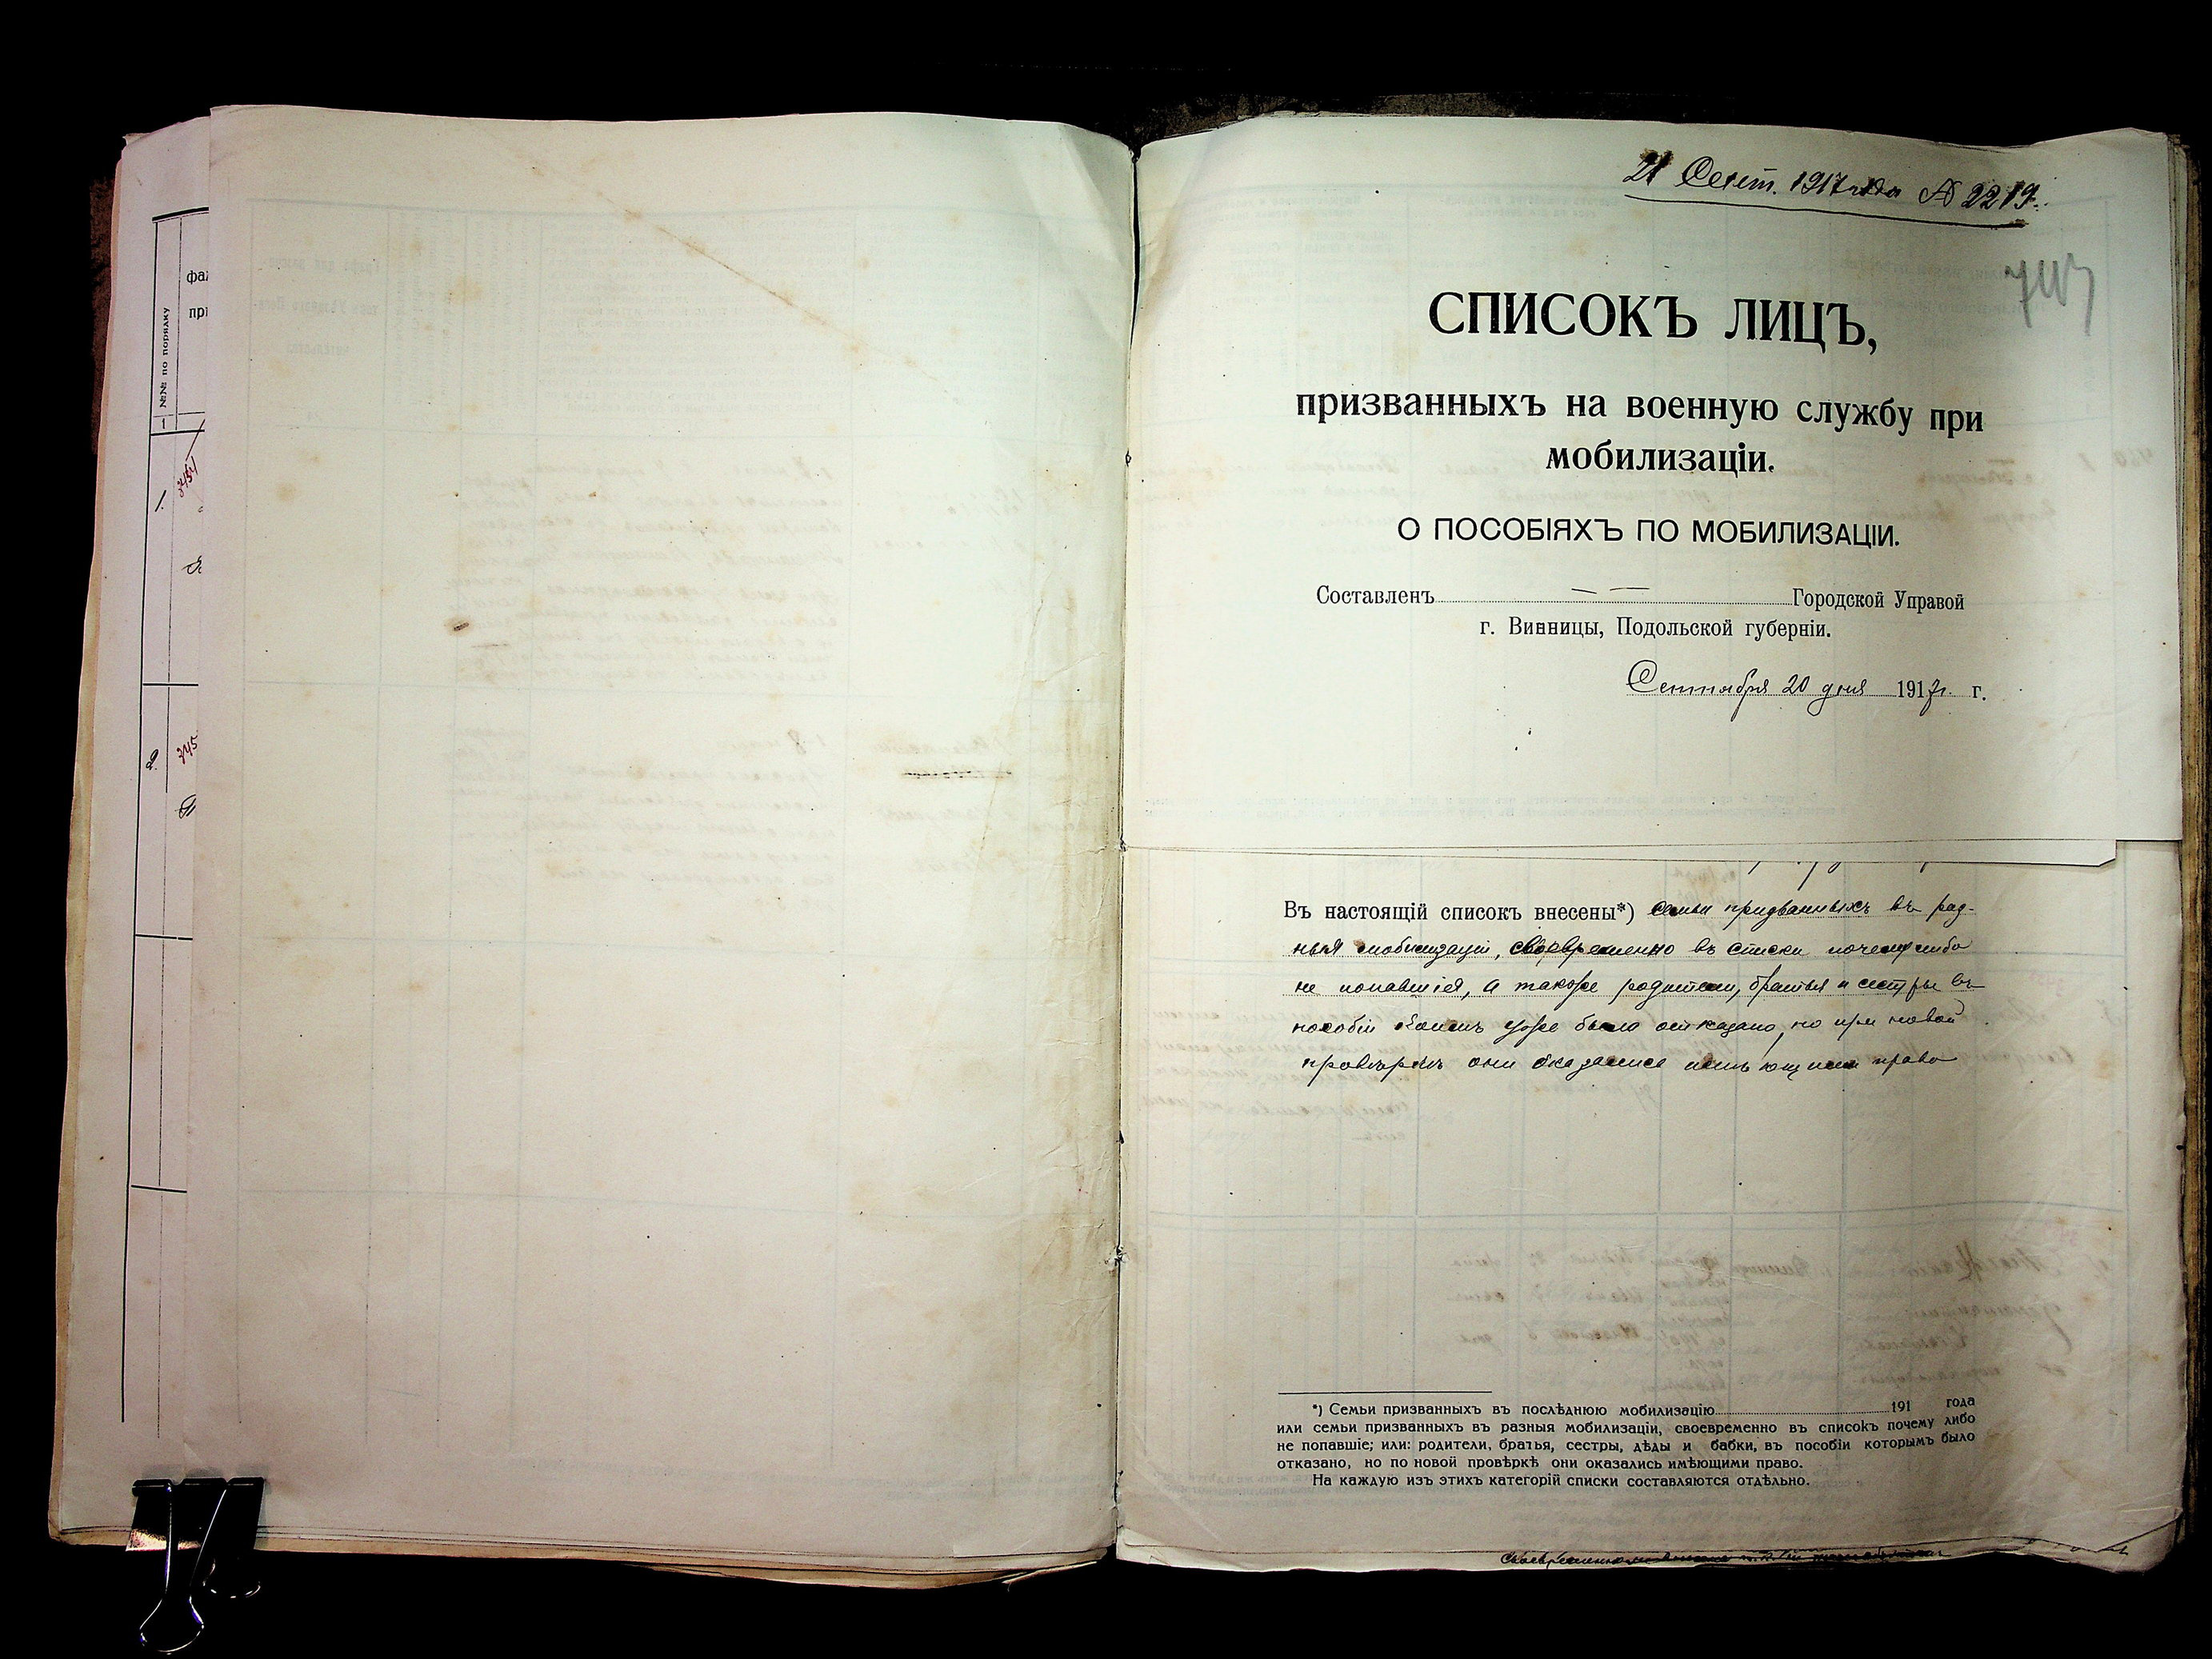 №№ по порядку
1
1.
2.
21 Сент. 1917 года № 2219.
743
СПИСОКЪ ЛИЦЪ,
призванныхъ на военную службу при
мобилизаціи.
О ПОСОБІЯХЪ ПО МОБИЛИЗАЦІИ.
Составленъ — — Городской Управой
г. Винницы, Подольской губерніи.
Сентября 20 дня 1917 г. г.
Въ настоящій списокъ внесены*) семьи призванныхъ въ раз-
ныя мобилизаціи, своевременно въ списки почему либо
не попавшія, а также родители, братья и сестры въ
пособіи коимъ уже было отказано, но при новой
провѣркѣ они оказались имѣющими право
*) Семьи призванныхъ въ послѣднюю мобилизацію 191 года
или семьи призванныхъ въ разныя мобилизаціи, своевременно въ списокъ почему либо
не попавшіе; или: родители, братья, сестры, дѣды и бабки, въ пособіи которымъ было
отказано, но по новой провѣркѣ они оказались имѣющими право.
На каждую изъ этихъ категорій списки составляются отдѣльно.